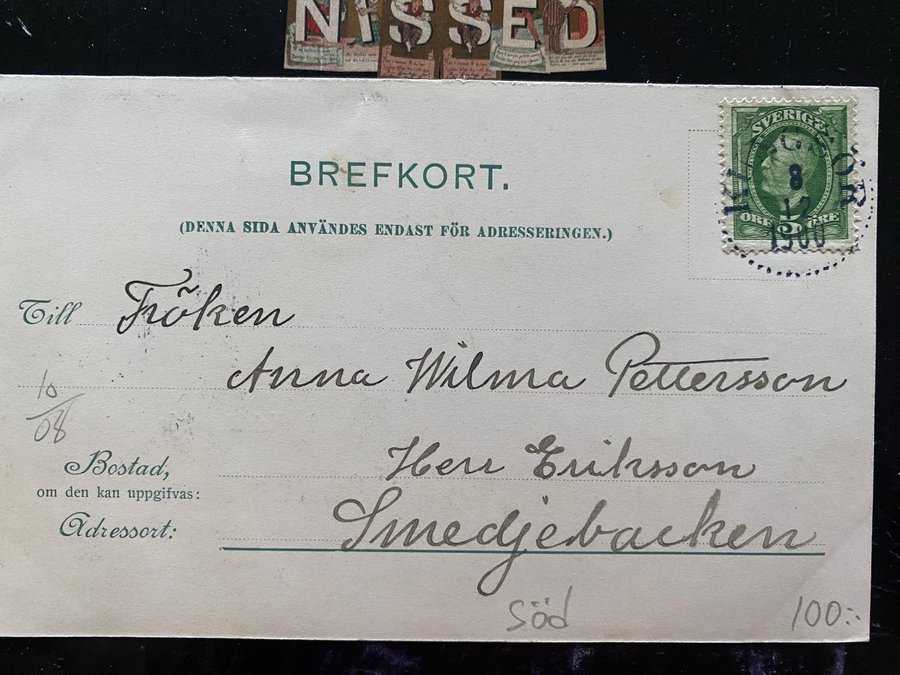 NISSED
BREFKORT.
(DENNA SIDA ANVÄNDES ENDAST FÖR ADRESSERINGEN.)
SVERIGE
ÖRE 5 ÖRE
8
12
1900
Till Fröken
Anna Wilma Pettersson
10/08
Herr Eriksson
Bostad,
om den kan uppgifvas:
Adressort: Smedjebacken
söd
100:-